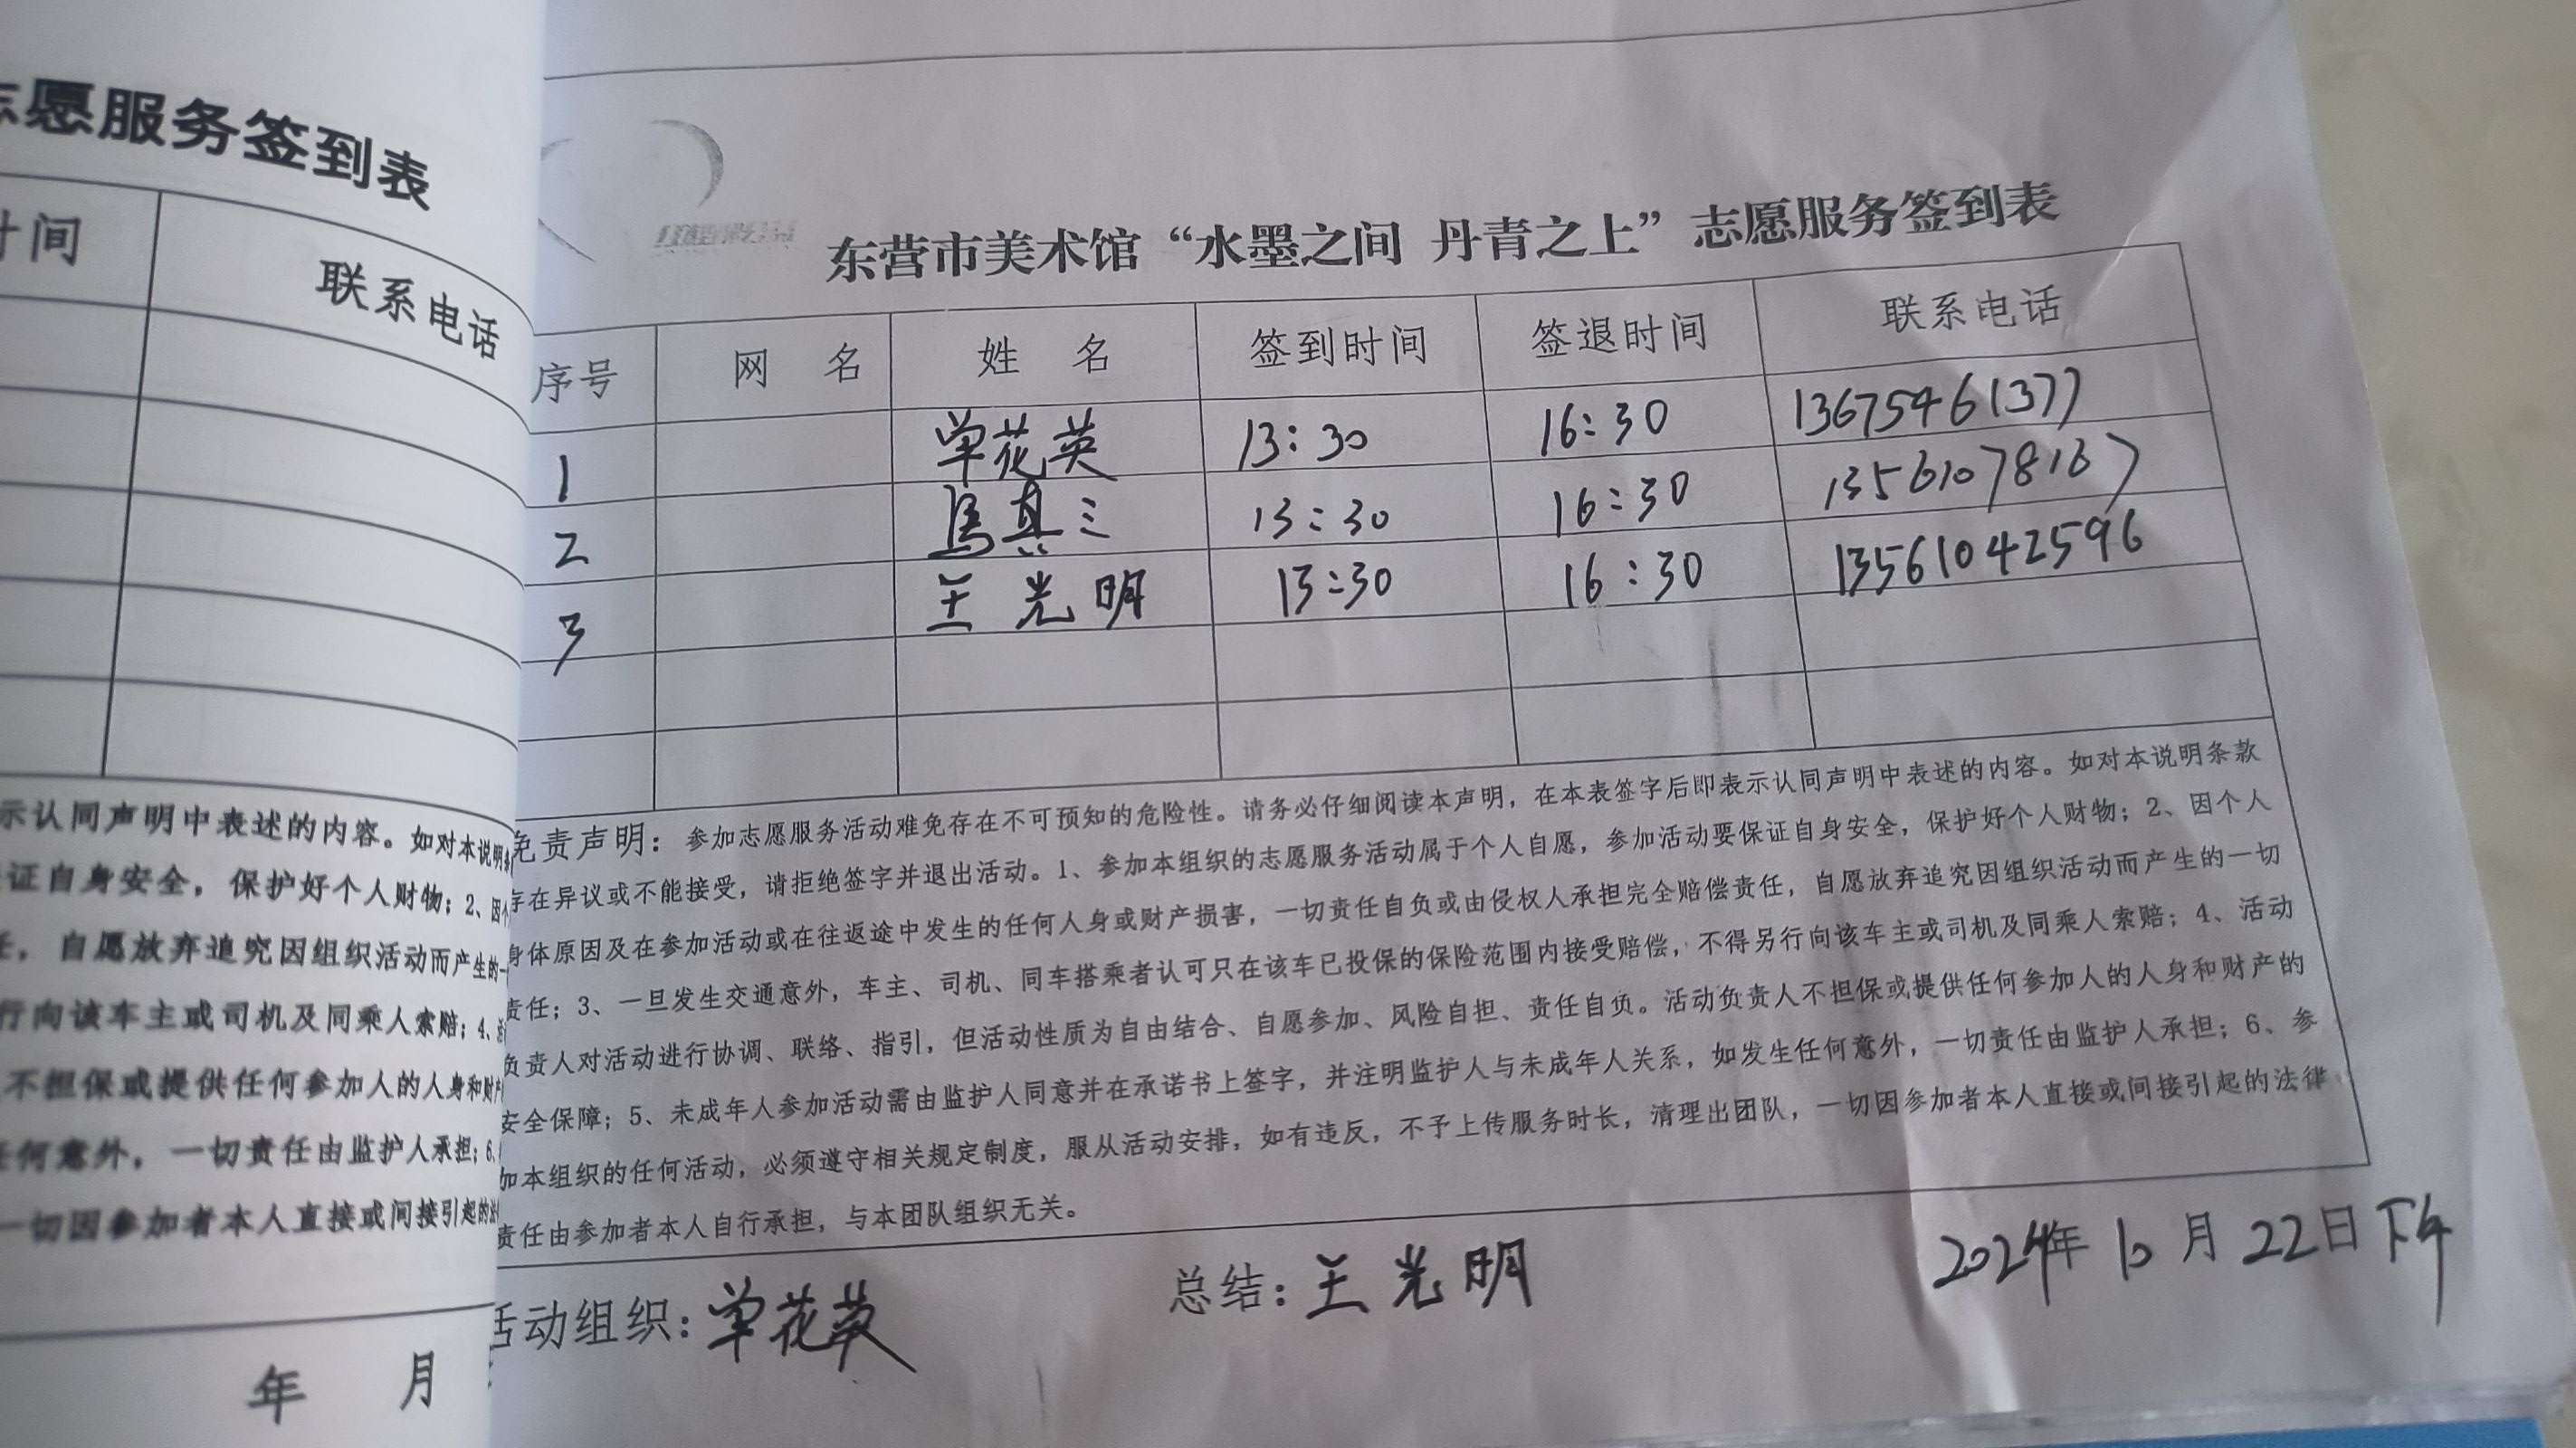 志愿服务签到表
时间
联系电话
示认同声明中表述的内容。如对本说明
证自身安全，保护好个人财物；2、因个
任，自愿放弃追究因组织活动而产生的一
行向该车主或司机及同乘人索赔；4、活
不担保或提供任何参加人的人身和财产
任何意外，一切责任由监护人承担；6、
一切因参加者本人直接或间接引起的法
年 月
东营市美术馆“水墨之间 丹青之上”志愿服务签到表
序号 网 名 姓 名 签到时间 签退时间 联系电话
1 单花英 13:30 16:30 13675461377
2 13:30 16:30 13561078167
3 王光明 13:30 16:30 13561042596
免责声明：参加志愿服务活动难免存在不可预知的危险性。请务必仔细阅读本声明，在本表签字后即表示认同声明中表述的内容。如对本说明条款
存在异议或不能接受，请拒绝签字并退出活动。1、参加本组织的志愿服务活动属于个人自愿，参加活动要保证自身安全，保护好个人财物；2、因个人
身体原因及在参加活动或在往返途中发生的任何人身或财产损害，一切责任自负或由侵权人承担完全赔偿责任，自愿放弃追究因组织活动而产生的一切
责任；3、一旦发生交通意外，车主、司机、同车搭乘者认可只在该车已投保的保险范围内接受赔偿，不得另行向该车主或司机及同乘人索赔；4、活动
负责人对活动进行协调、联络、指引，但活动性质为自由结合、自愿参加、风险自担、责任自负。活动负责人不担保或提供任何参加人的人身和财产的
安全保障；5、未成年人参加活动需由监护人同意并在承诺书上签字，并注明监护人与未成年人关系，如发生任何意外，一切责任由监护人承担；6、参
加本组织的任何活动，必须遵守相关规定制度，服从活动安排，如有违反，不予上传服务时长，清理出团队，一切因参加者本人直接或间接引起的法律
责任由参加者本人自行承担，与本团队组织无关。
活动组织：单花英 总结：王光明 2024年10月22日下午